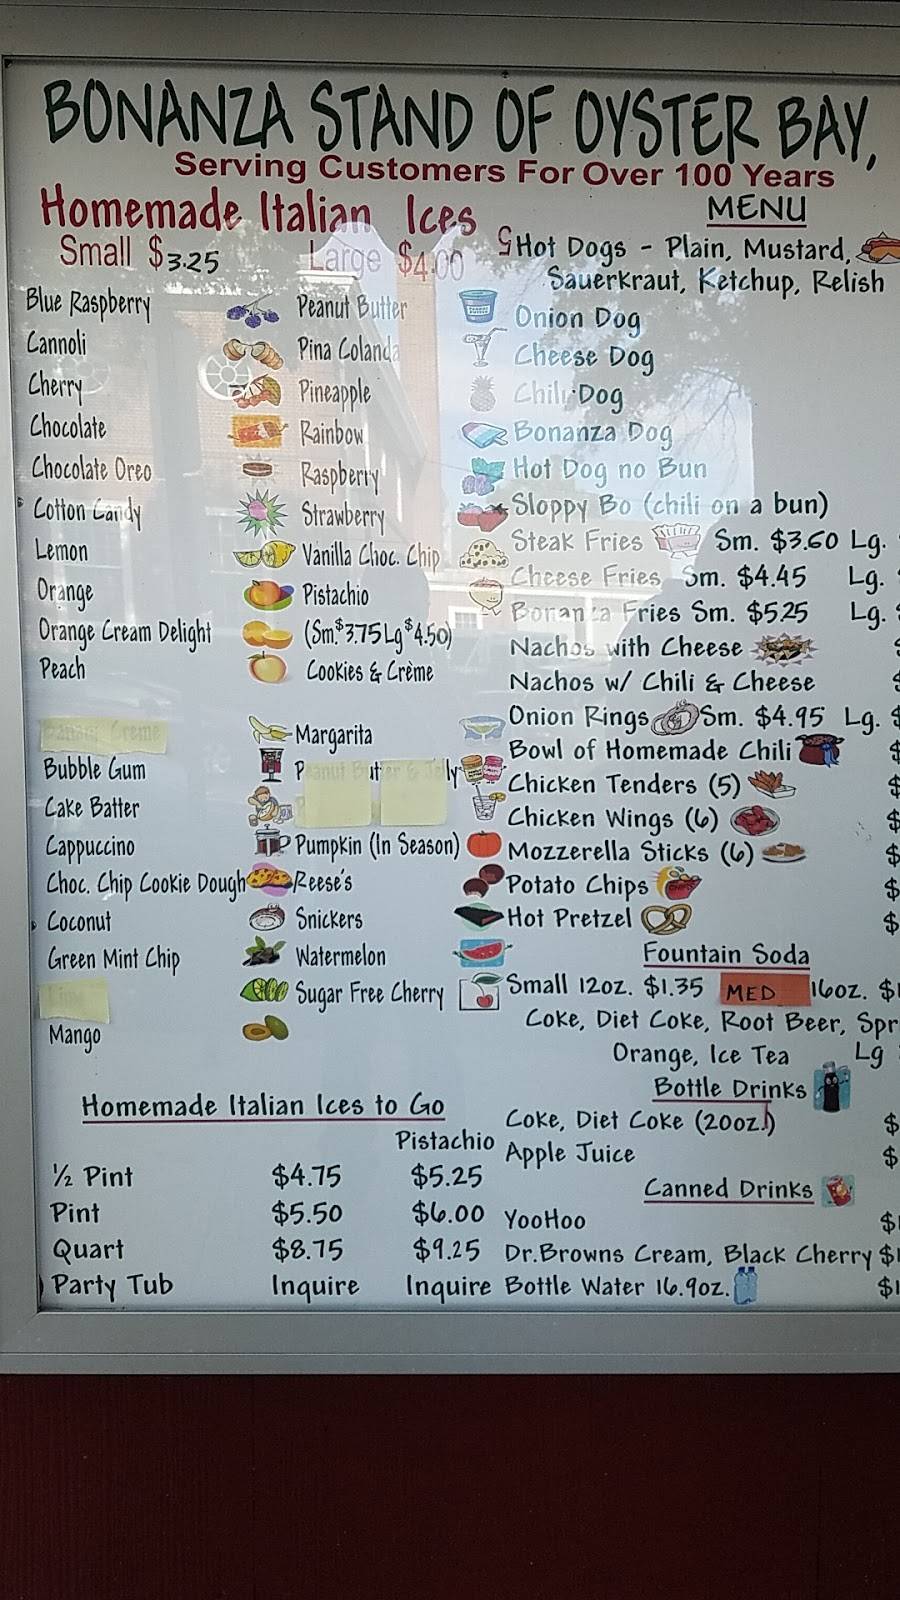 BONANZA STAND OF OYSTER BAY,
Serving Customers For Over 100 Years
Homemade Italian Ices
Small $3.25 Large $4.00
Blue Raspberry
Cannoli
Cherry
Chocolate
Chocolate Oreo
Cotton Candy
Lemon
Orange
Orange Cream Delight
Peach
Banana Creme
Bubble Gum
Cake Batter
Cappuccino
Choc. Chip Cookie Dough
Coconut
Green Mint Chip
Lime
Mango
Peanut Butter
Pina Colanda
Pineapple
Rainbow
Raspberry
Strawberry
Vanilla Choc. Chip
Pistachio
(Sm.$3.75 Lg $4.50)
Cookies & Crème
Margarita
Peanut Butter & Jelly
Pumpkin (In Season)
Reese's
Snickers
Watermelon
Sugar Free Cherry
Homemade Italian Ices to Go
Pistachio
½ Pint $4.75 $5.25
Pint $5.50 $6.00
Quart $8.75 $9.25
Party Tub Inquire Inquire
MENU
Hot Dogs - Plain, Mustard,
Sauerkraut, Ketchup, Relish
Onion Dog
Cheese Dog
Chili Dog
Bonanza Dog
Hot Dog no Bun
Sloppy Bo (chili on a bun)
Steak Fries Sm. $3.60 Lg.
Cheese Fries Sm. $4.45 Lg.
Bonanza Fries Sm. $5.25 Lg.
Nachos with Cheese
Nachos w/ Chili & Cheese
Onion Rings Sm. $4.95 Lg. $
Bowl of Homemade Chili $
Chicken Tenders (5) $
Chicken Wings (6) $
Mozzerella Sticks (6) $
Potato Chips $
Hot Pretzel $
Fountain Soda
Small 12oz. $1.35 MED 16oz. $1
Coke, Diet Coke, Root Beer, Spr
Orange, Ice Tea Lg
Bottle Drinks
Coke, Diet Coke (20oz.) $
Apple Juice $
Canned Drinks
YooHoo $1
Dr.Browns Cream, Black Cherry $1
Bottle Water 16.9oz. $1